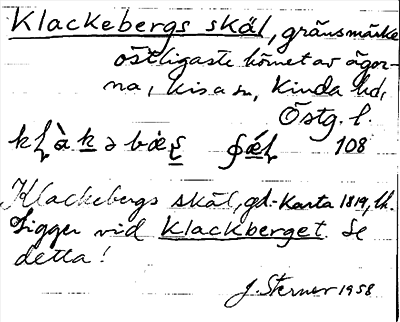 Klackebergs skäl, gränsmärke
östligaste hörnet av ägor-
na, Kisa sn, Kinda hd,
Östg. l.
108
Klackebergs skäl, gd. Karta 1819, lk.
Ligger vid Klackberget. Se
detta!
J. Sterner 1958